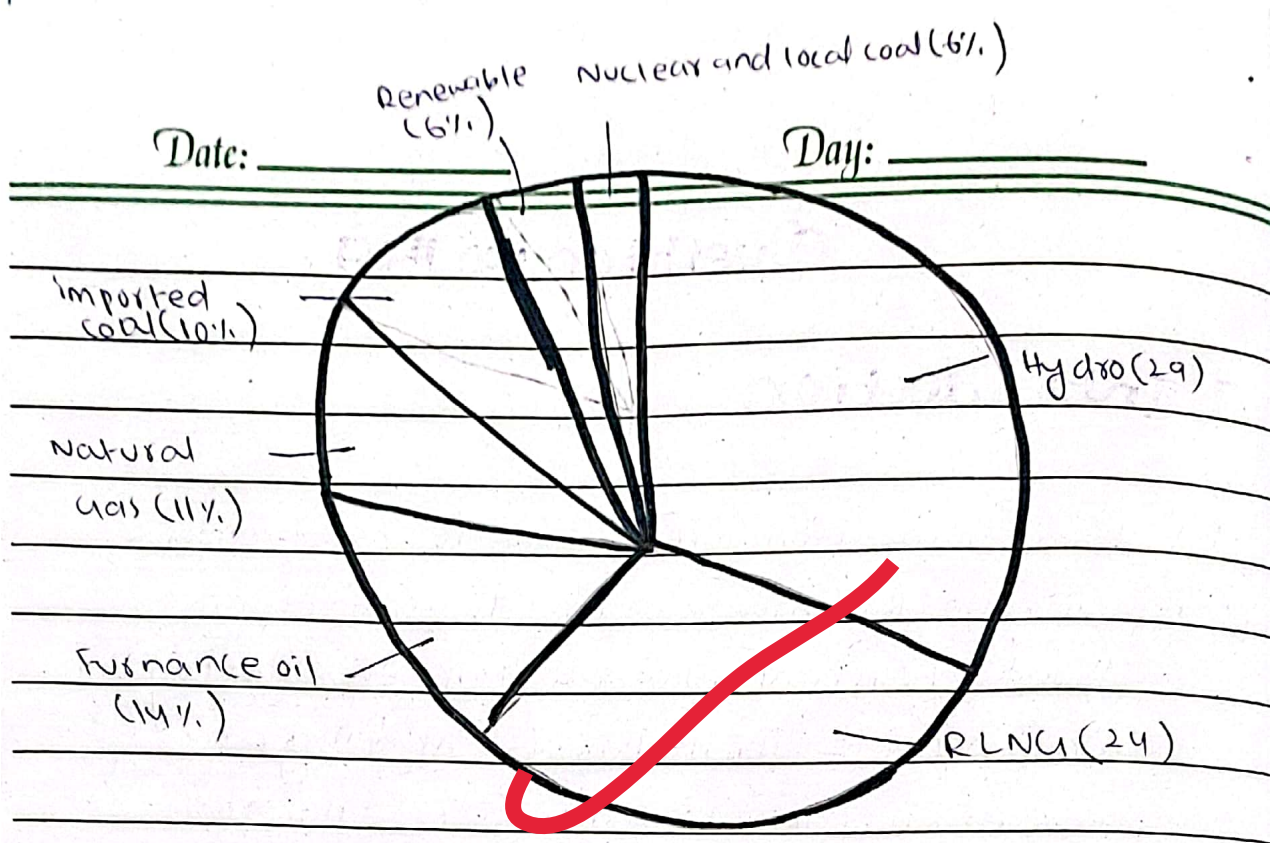 Renewable
(6%)
Nuclear and local coal (6%)
Date:
Day:
imported
coal (10%)
Hydro (29)
Natural
Gas (11%)
Furnance oil
(14%)
RLNG (24)